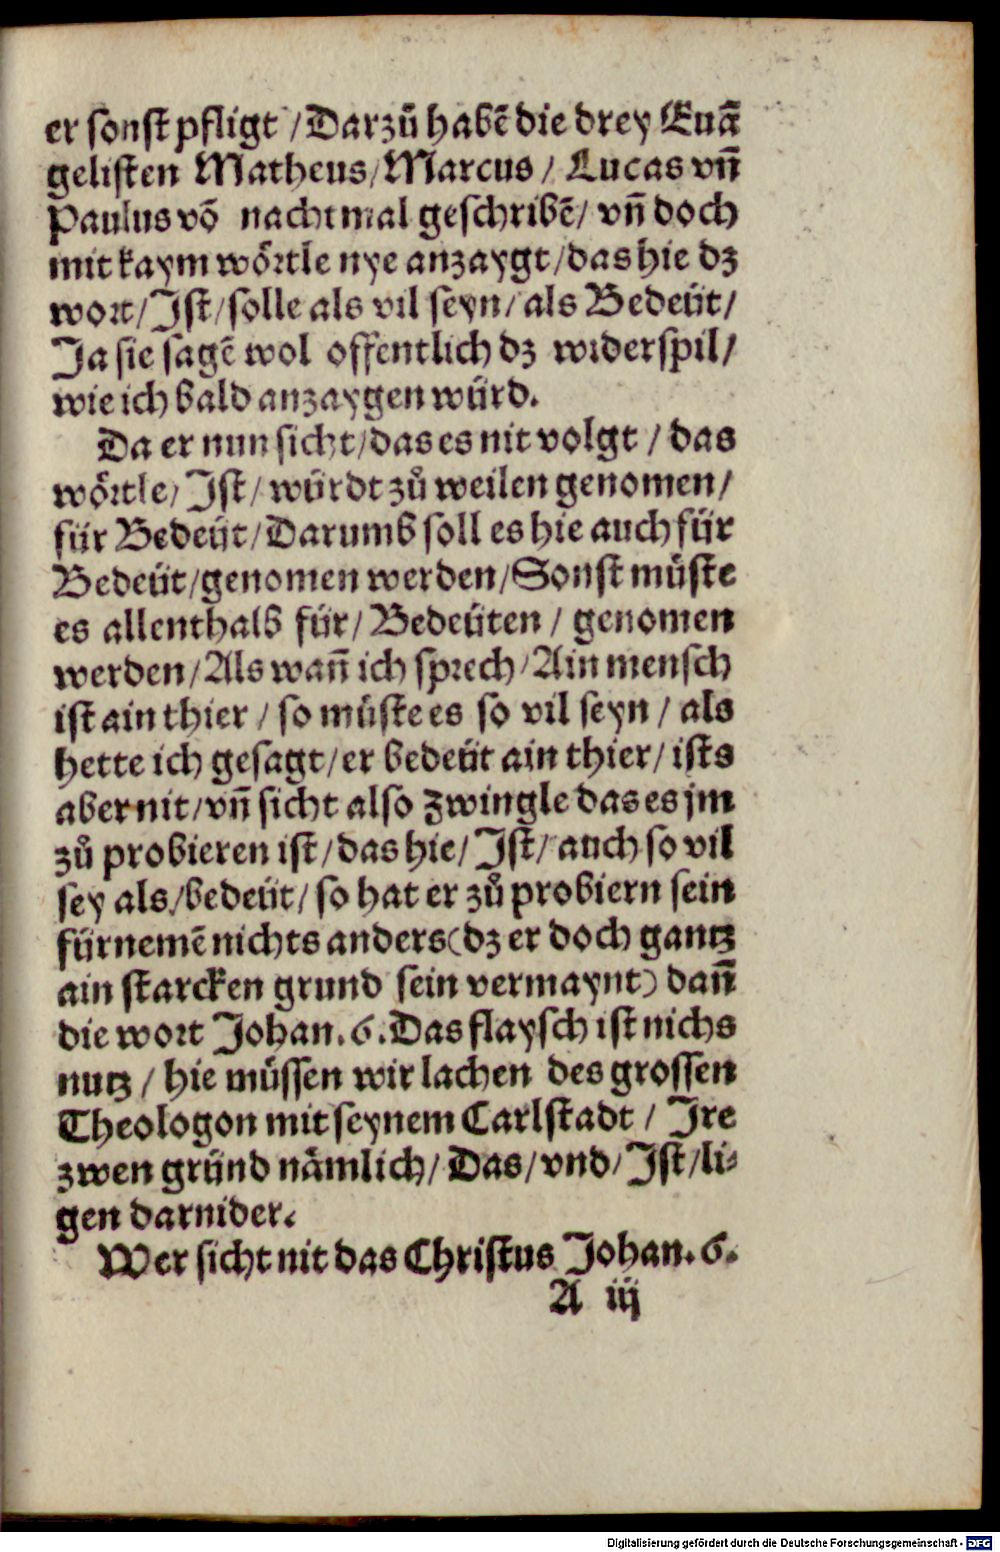 er sonst pfligt / Darzů habẽ die drey Euã
gelisten Matheus / Marcus / Lucas vñ
Paulus võ nachtmal geschribẽ / vñ doch
mit kaym wörtle nye anzaygt / das hie dz
wort / Ist / solle als vil seyn / als Bedeüt /
Ja sie sagẽ wol offentlich dz widerspil /
wie ich bald anzaygen würd.
Da er nun sicht / das es nit volgt / das
wörtle / Ist / würdt zů weilen genomen /
für Bedeüt / Darumb soll es hie auch für
Bedeüt / genomen werden / Sonst müste
es allenthalb für / Bedeüten / genomen
werden / Als wañ ich sprech / Ain mensch
ist ain thier / so müste es so vil seyn / als
hette ich gesagt / er bedeüt ain thier / ists
aber nit / vñ sicht also Zwingle das es jm
zů probieren ist / das hie / Ist / auch so vil
sey als / bedeüt / so hat er zů probiern sein
fürnemẽ nichts anders (dz er doch gantz
ain starcken grund sein vermaynt) dañ
die wort Johan. 6. Das flaysch ist nichs
nutz / hie müssen wir lachen des grossen
Theologon mit seynem Carlstadt / Ire
zwen gründ nämlich / Das / vnd / Ist / li⸗
gen darnider.
Wer sicht nit das Christus Johan. 6.
A iij
Digitalisierung gefördert durch die Deutsche Forschungsgemeinschaft - DFG